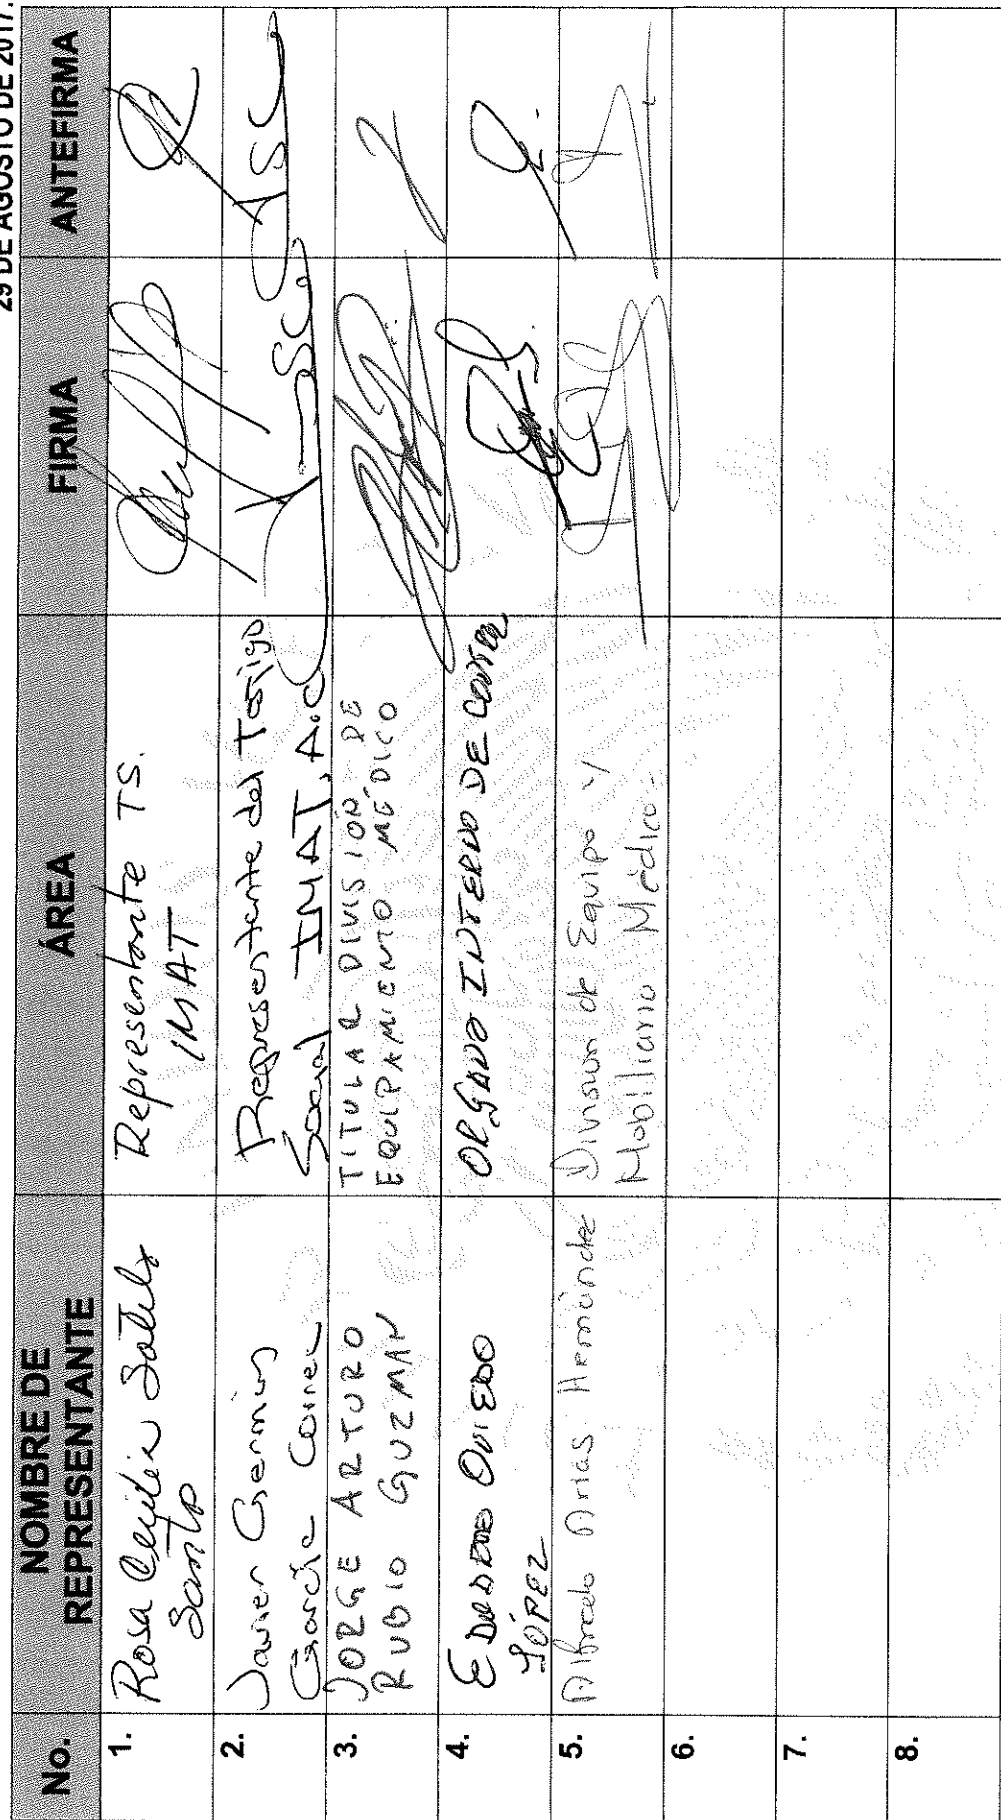 29 DE AGOSTO DE 2017.
No.
NOMBRE DE
REPRESENTANTE
ÁREA
FIRMA
ANTEFIRMA
1.
Rosa
Representante TS.
IMAT
2.
Javier
García
Representante del
Social IMAT, A.C
3.
JORGE ARTURO
RUBIO GUZMAN
TITULAR DIVISION DE
EQUIPAMIENTO MÉDICO
4.
OVIEDO
LÓPEZ
ORGANO INTERNO DE
5.
Alfredo Arias Hernández
Division de Equipo y
Mobiliario Médico
6.
7.
8.